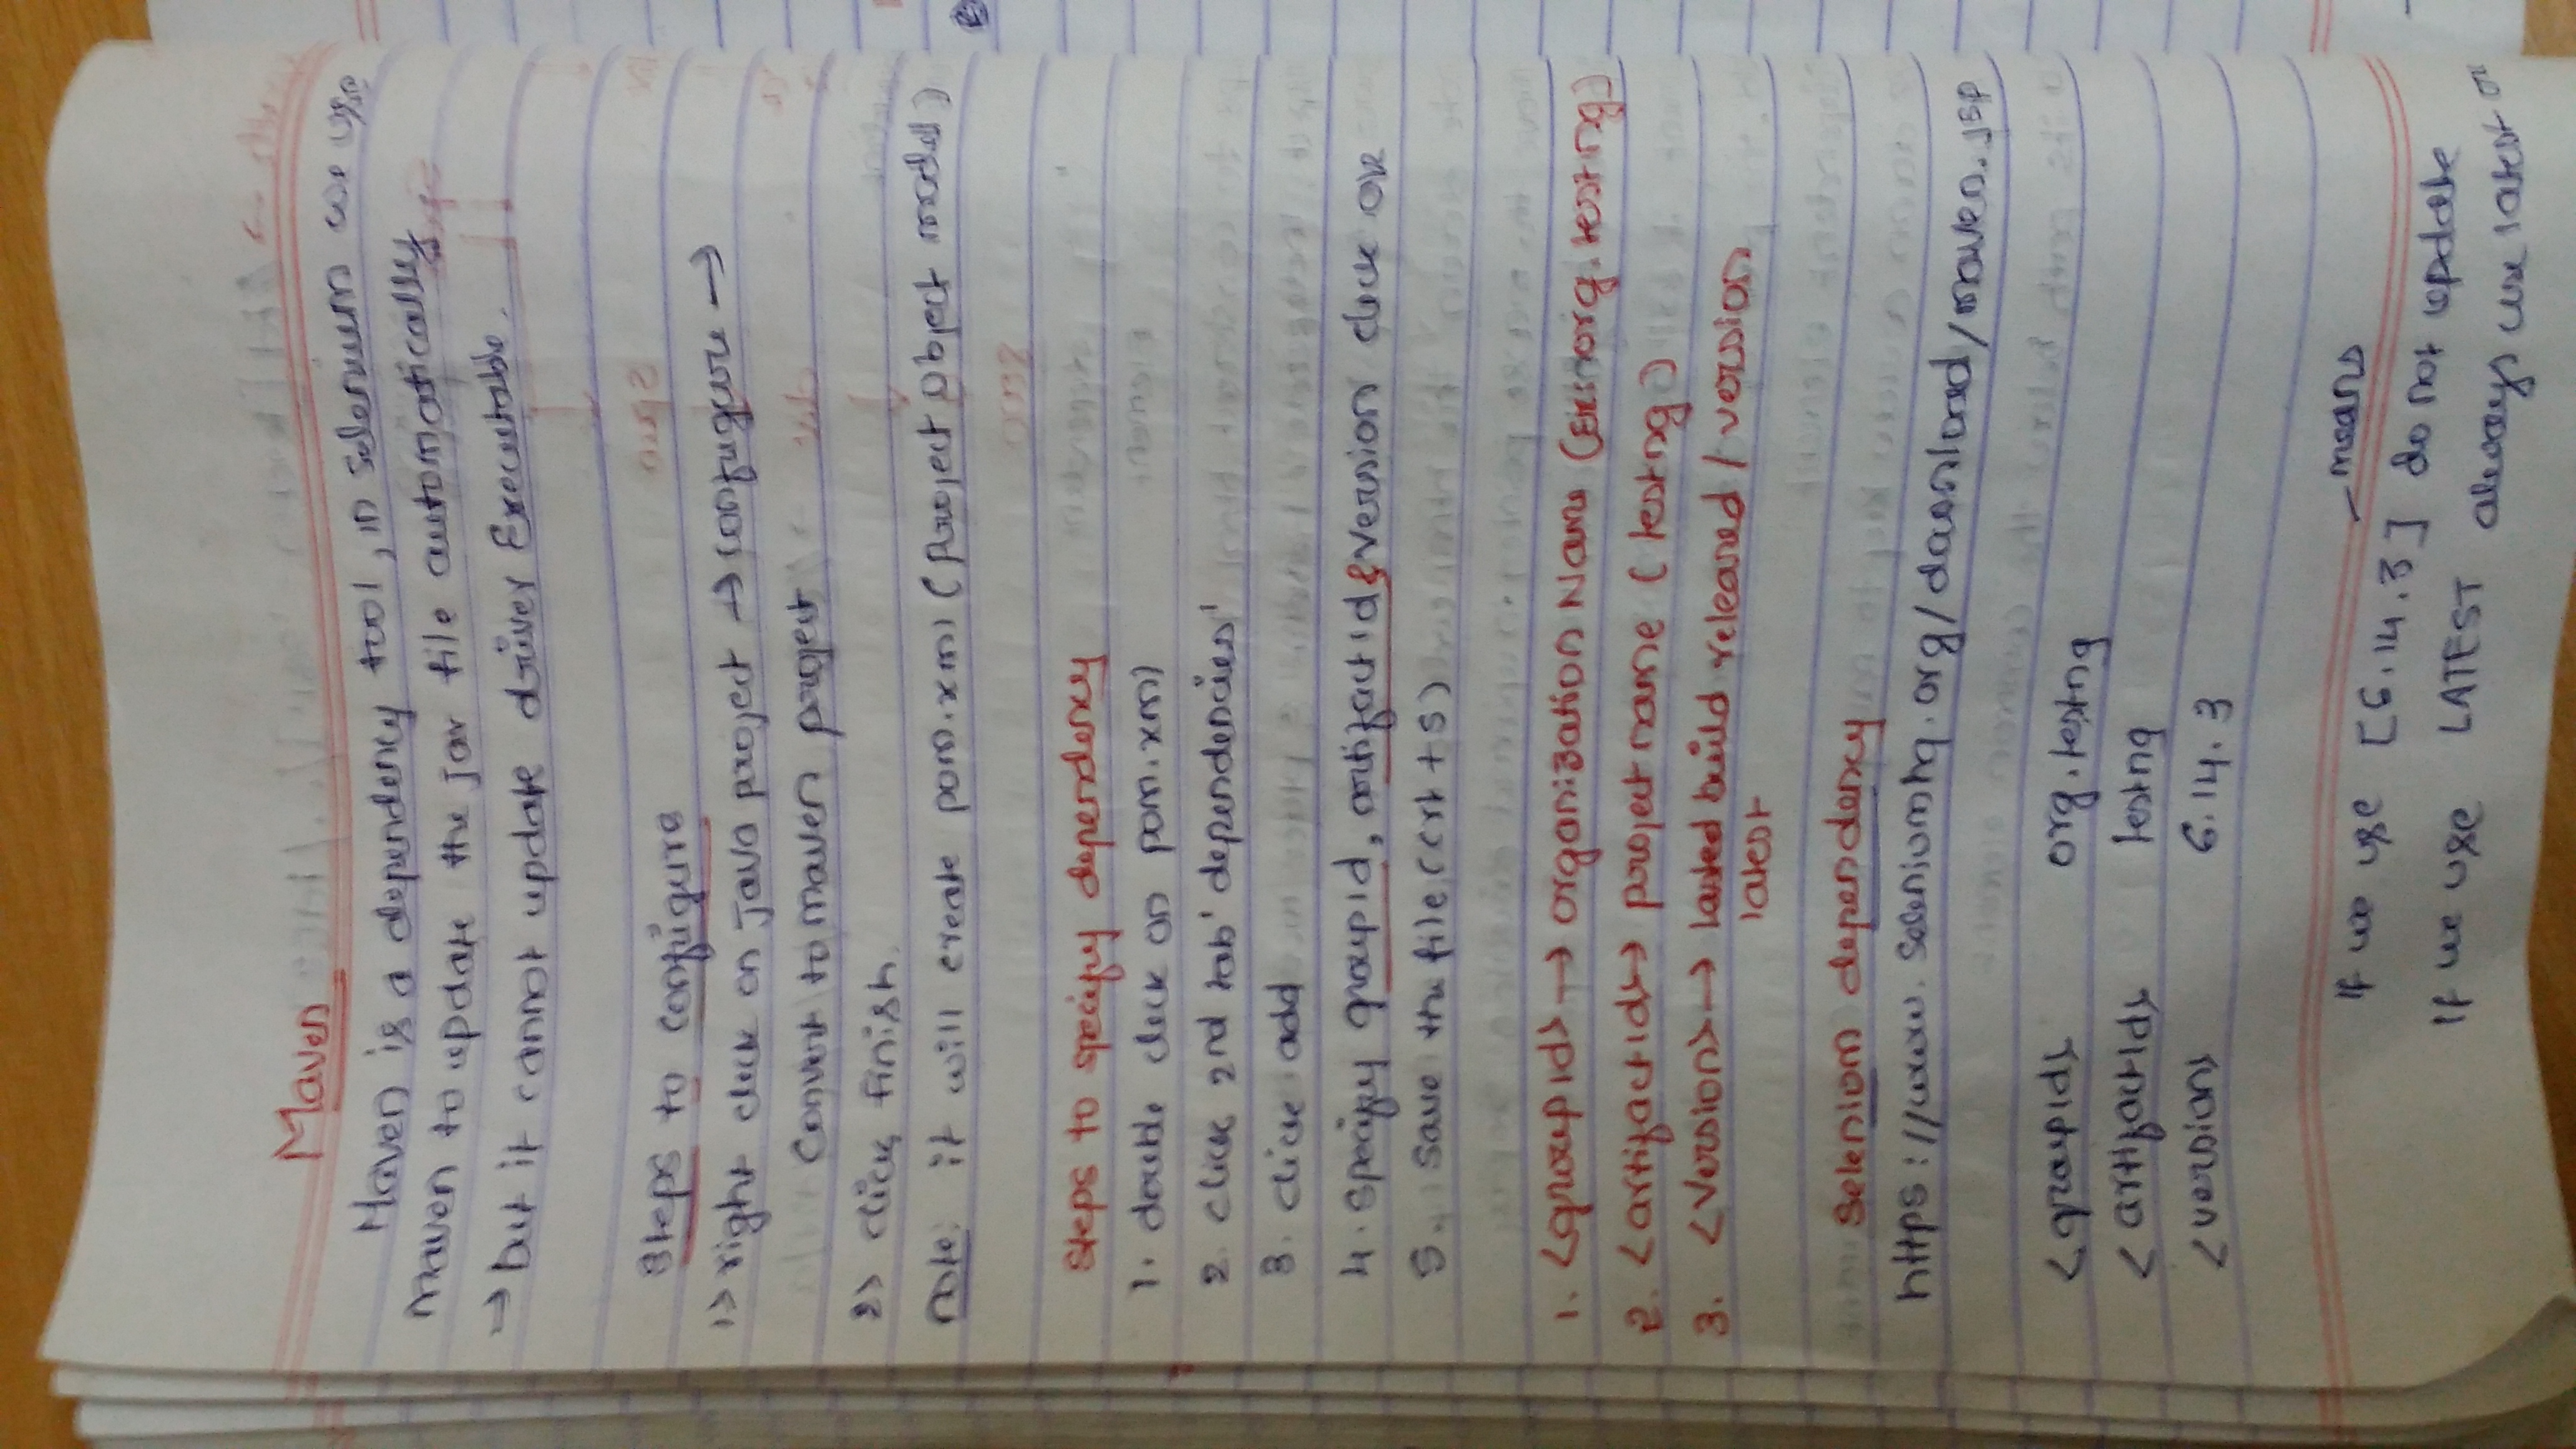 Maven
Maven is a dependency tool, in selenium we use
maven to update the jar file automatically
→ but it cannot update driver Executable.
Steps to configure
1> right click on java project → configure →
Convert to maven project
2> click finish.
note: it will create pom.xml (Project Object model)
steps to specify dependency
1. double click on pom.xml
2. click 2nd tab 'dependencies'
3. click add
4. specify groupId, artifactId & version click ok
5. save the file (crt + s)
1. <groupId> → organization Name (Ex: org.testng)
2. <artifactId> → project name (testng)
3. <Version> → lasted build released / version
latest
Selenium dependency
https://www.seleniumhq.org/download/maven.jsp
<groupId> org.testng
<artifactId> testng
<version> 6.14.3
means
If we use [6.14.3] do not update
If we use LATEST always use latest